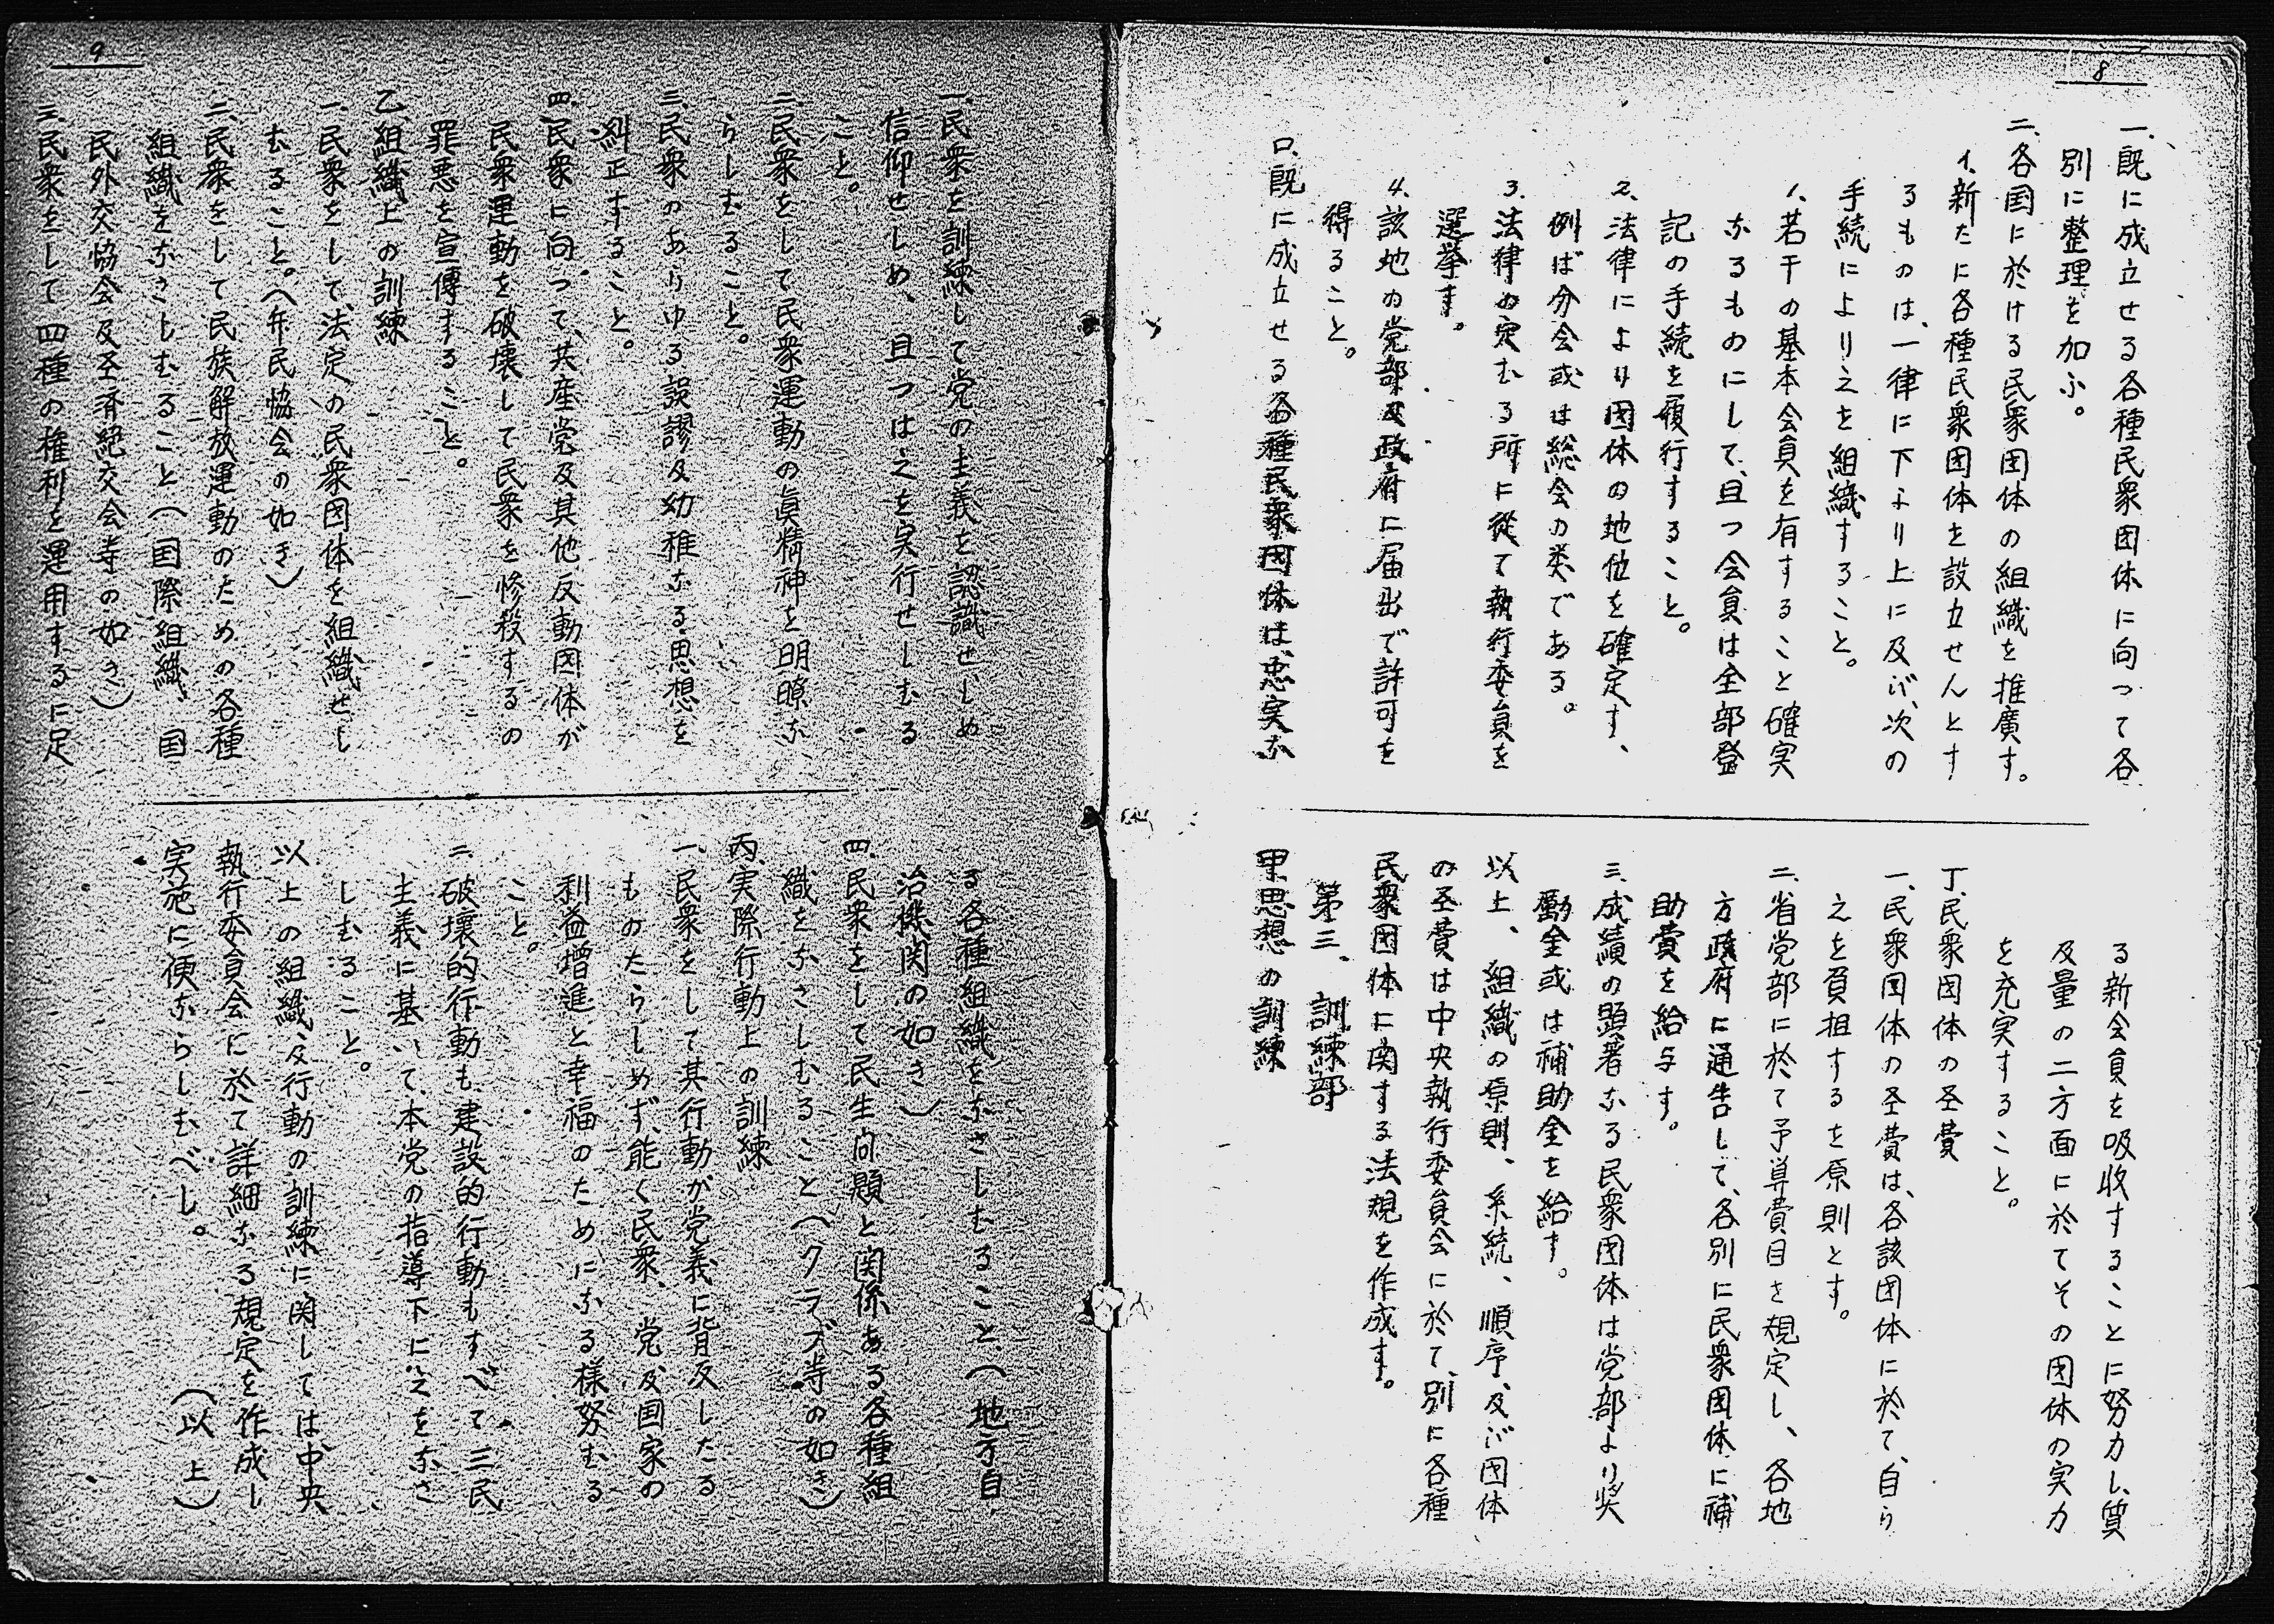 8
一、既に成立せる各種民衆団体に向つて各
別に整理を加ふ。
二、各国に於ける民衆団体の組織を推廣す。
イ、新たに各種民衆団体を設立せんとす
るものは、一律に下より上に及び、次の
手続により之を組織すること。
1、若干の基本会員を有すること確実
なるものにして、且つ会員は全部登
記の手続を履行すること。
2、法律により団体の地位を確定す、
例ば分会或は総会の類である。
3、法律の定むる所に從て執行委員を
選挙す。
4、該地の党部及政府に届出で許可を
得ること。
ロ、既に成立せる各種民衆団体は、忠実な
る新会員を吸收することに努力し、質
及量の二方面に於てその団体の実力
を充実すること。
丁、民衆団体の圣費
一、民衆団体の圣費は、各該団体に於て、自ら
之を負担するを原則とす。
二、省党部に於て予算費目を規定し、各地
方政府に通告して、各別に民衆団体に補
助費を給与す。
三、成績の顕著なる民衆団体は党部より奨
勵金或は補助金を給す。
以上、組織の原則、系統、順序、及び団体
の圣費は中央執行委員会に於て、別に各種
民衆団体に関する法規を作成す。
第三、訓練部
甲、思想の訓練
9
一、民衆を訓練して党の主義を認識せしめ
信仰せしめ、且つは之を実行せしむる
こと。
二、民衆をして民衆運動の眞精神を明瞭な
らしむること。
三、民衆のあらゆる誤謬及幼稚なる思想を
糾正すること。
四、民衆に向つて、共産党及其他反動団体が
民衆運動を破壊して民衆を惨殺するの
罪悪を宣傳すること。
乙、組織上の訓練
一、民衆をして、法定の民衆団体を組織せし
むること。(午民協会の如き)
二、民衆をして民族解放運動のための各種
組織をなさしむること(国際組織、国
民外交協会及圣済絶交会等の如き)
三、民衆をして四種の権利を運用するに足
る各種組織をなさしむること、(地方自
治機関の如き)
四、民衆をして民生向題と関係ある各種組
織をなさしむること(クラブ等の如き)
丙、実際行動上の訓練
一、民衆をして其行動が党義に背反したる
ものたらしめず、能く民衆、党及国家の
利益増進と幸福のためになる様努むる
こと。
二、破壊的行動も建設的行動もすべて三民
主義に基いて、本党の指導下に之をなさ
しむること。
以上の組織、及行動の訓練に関しては中央
執行委員会に於て詳細なる規定を作成し
実施に便ならしむべし。
(以上)